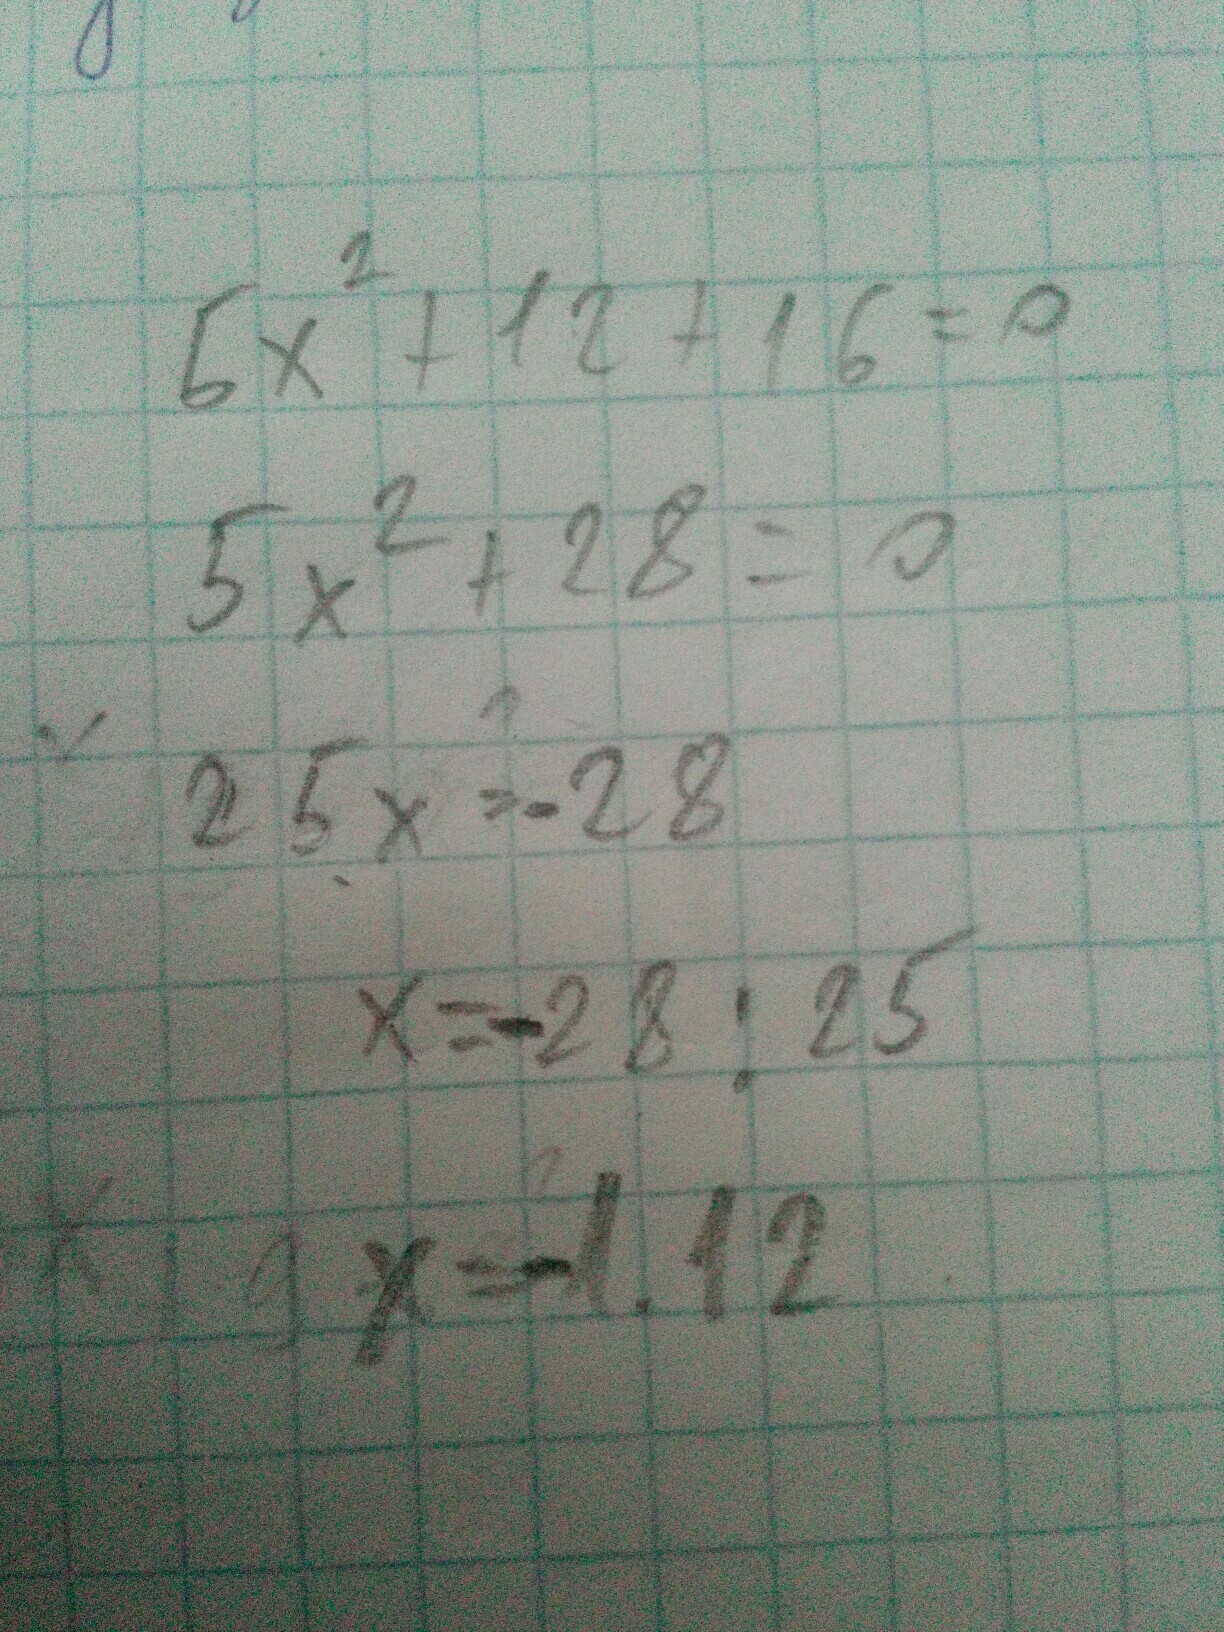 5x² + 12 + 16 = 0
5x² + 28 = 0
25x = -28
x = -28 : 25
x = -1.12